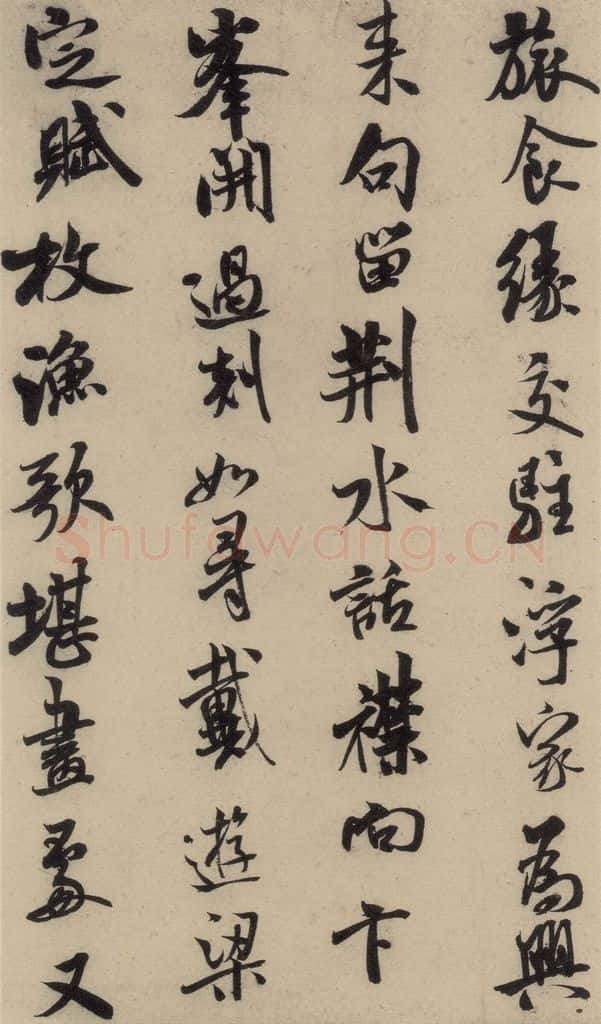 旅食緣交駐浮家為興
来句留荆水話襟向卞
峯開過剡如尋戴遊梁
定賦枚漁歌堪畫處又
Shufawang.CN